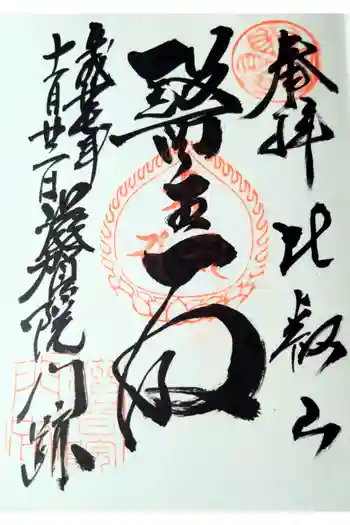 奉拝 比叡山
醫王殿
平成廿年
十一月廿一日 滋賀院門跡